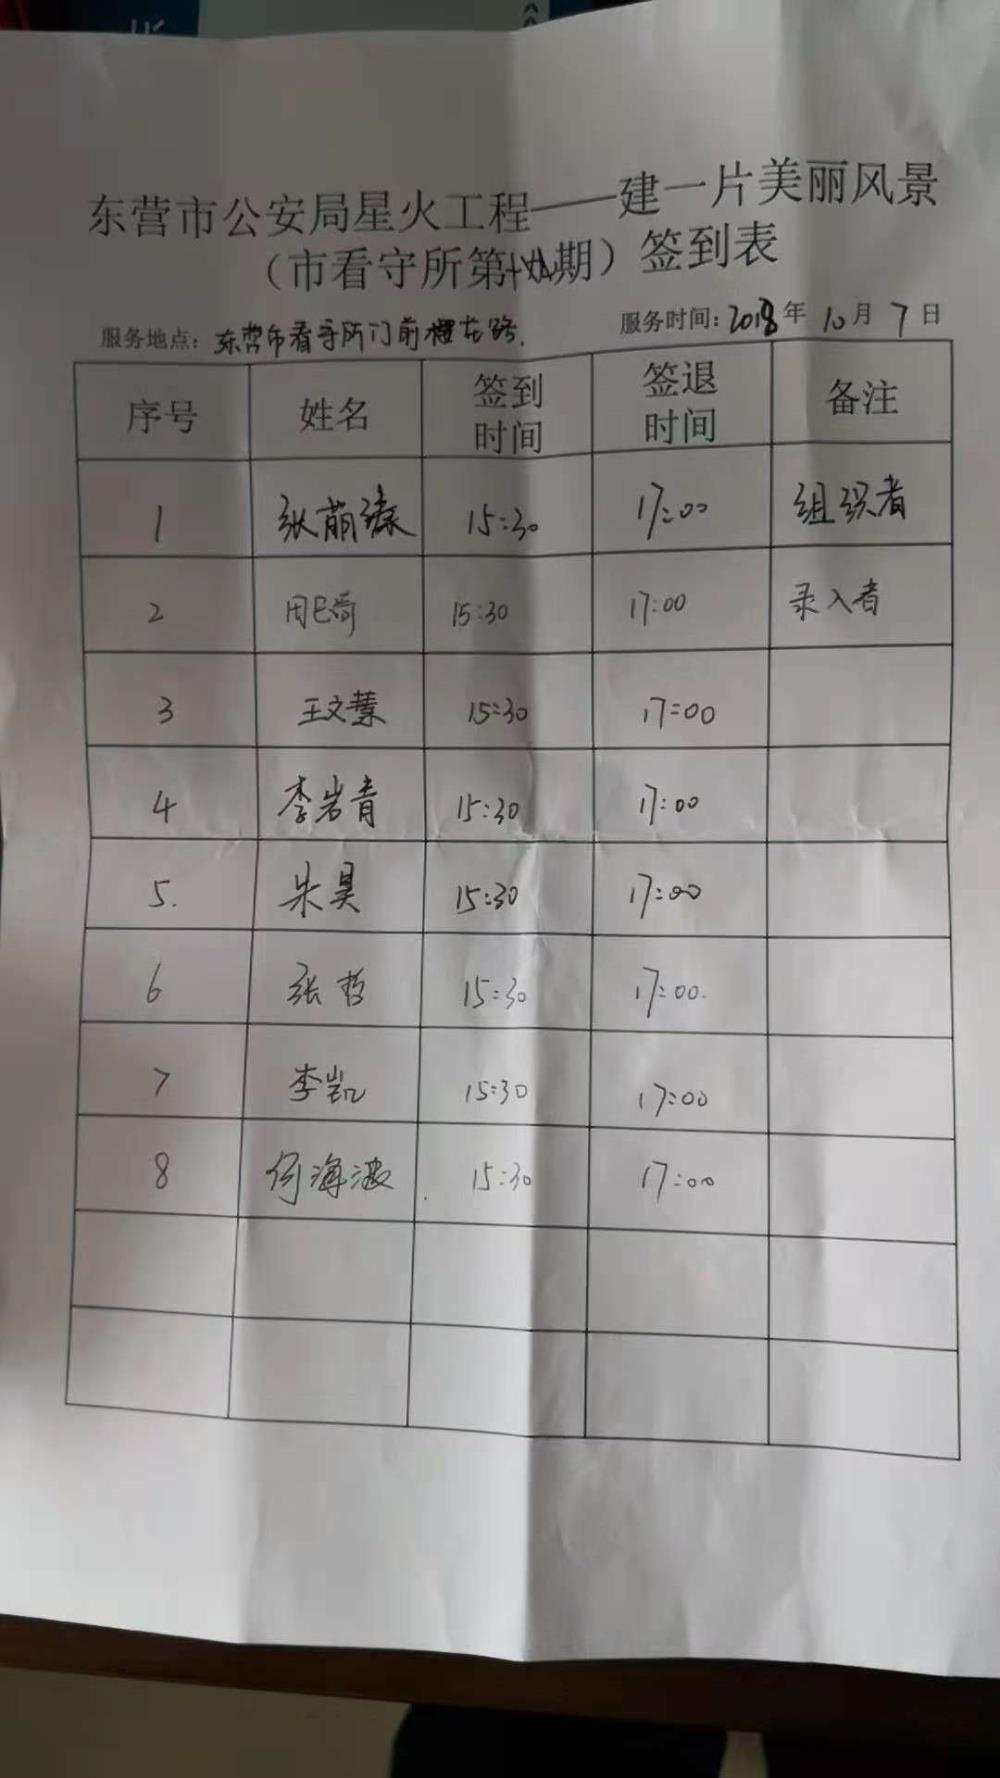 东营市公安局星火工程——建一片美丽风景
（市看守所第十八期）签到表
服务地点：东营市看守所门前樱花路. 服务时间：2018年10月7日
序号 姓名 签到时间 签退时间 备注
1 张萌臻 15:30 17:00 组织者
2 15:30 17:00 录入者
3 王文慧 15:30 17:00
4 李岩青 15:30 17:00
5. 朱昊 15:30 17:00
6 张哲 15:30 17:00.
7 李凯 15:30 17:00
8 何海波 15:30 17:00